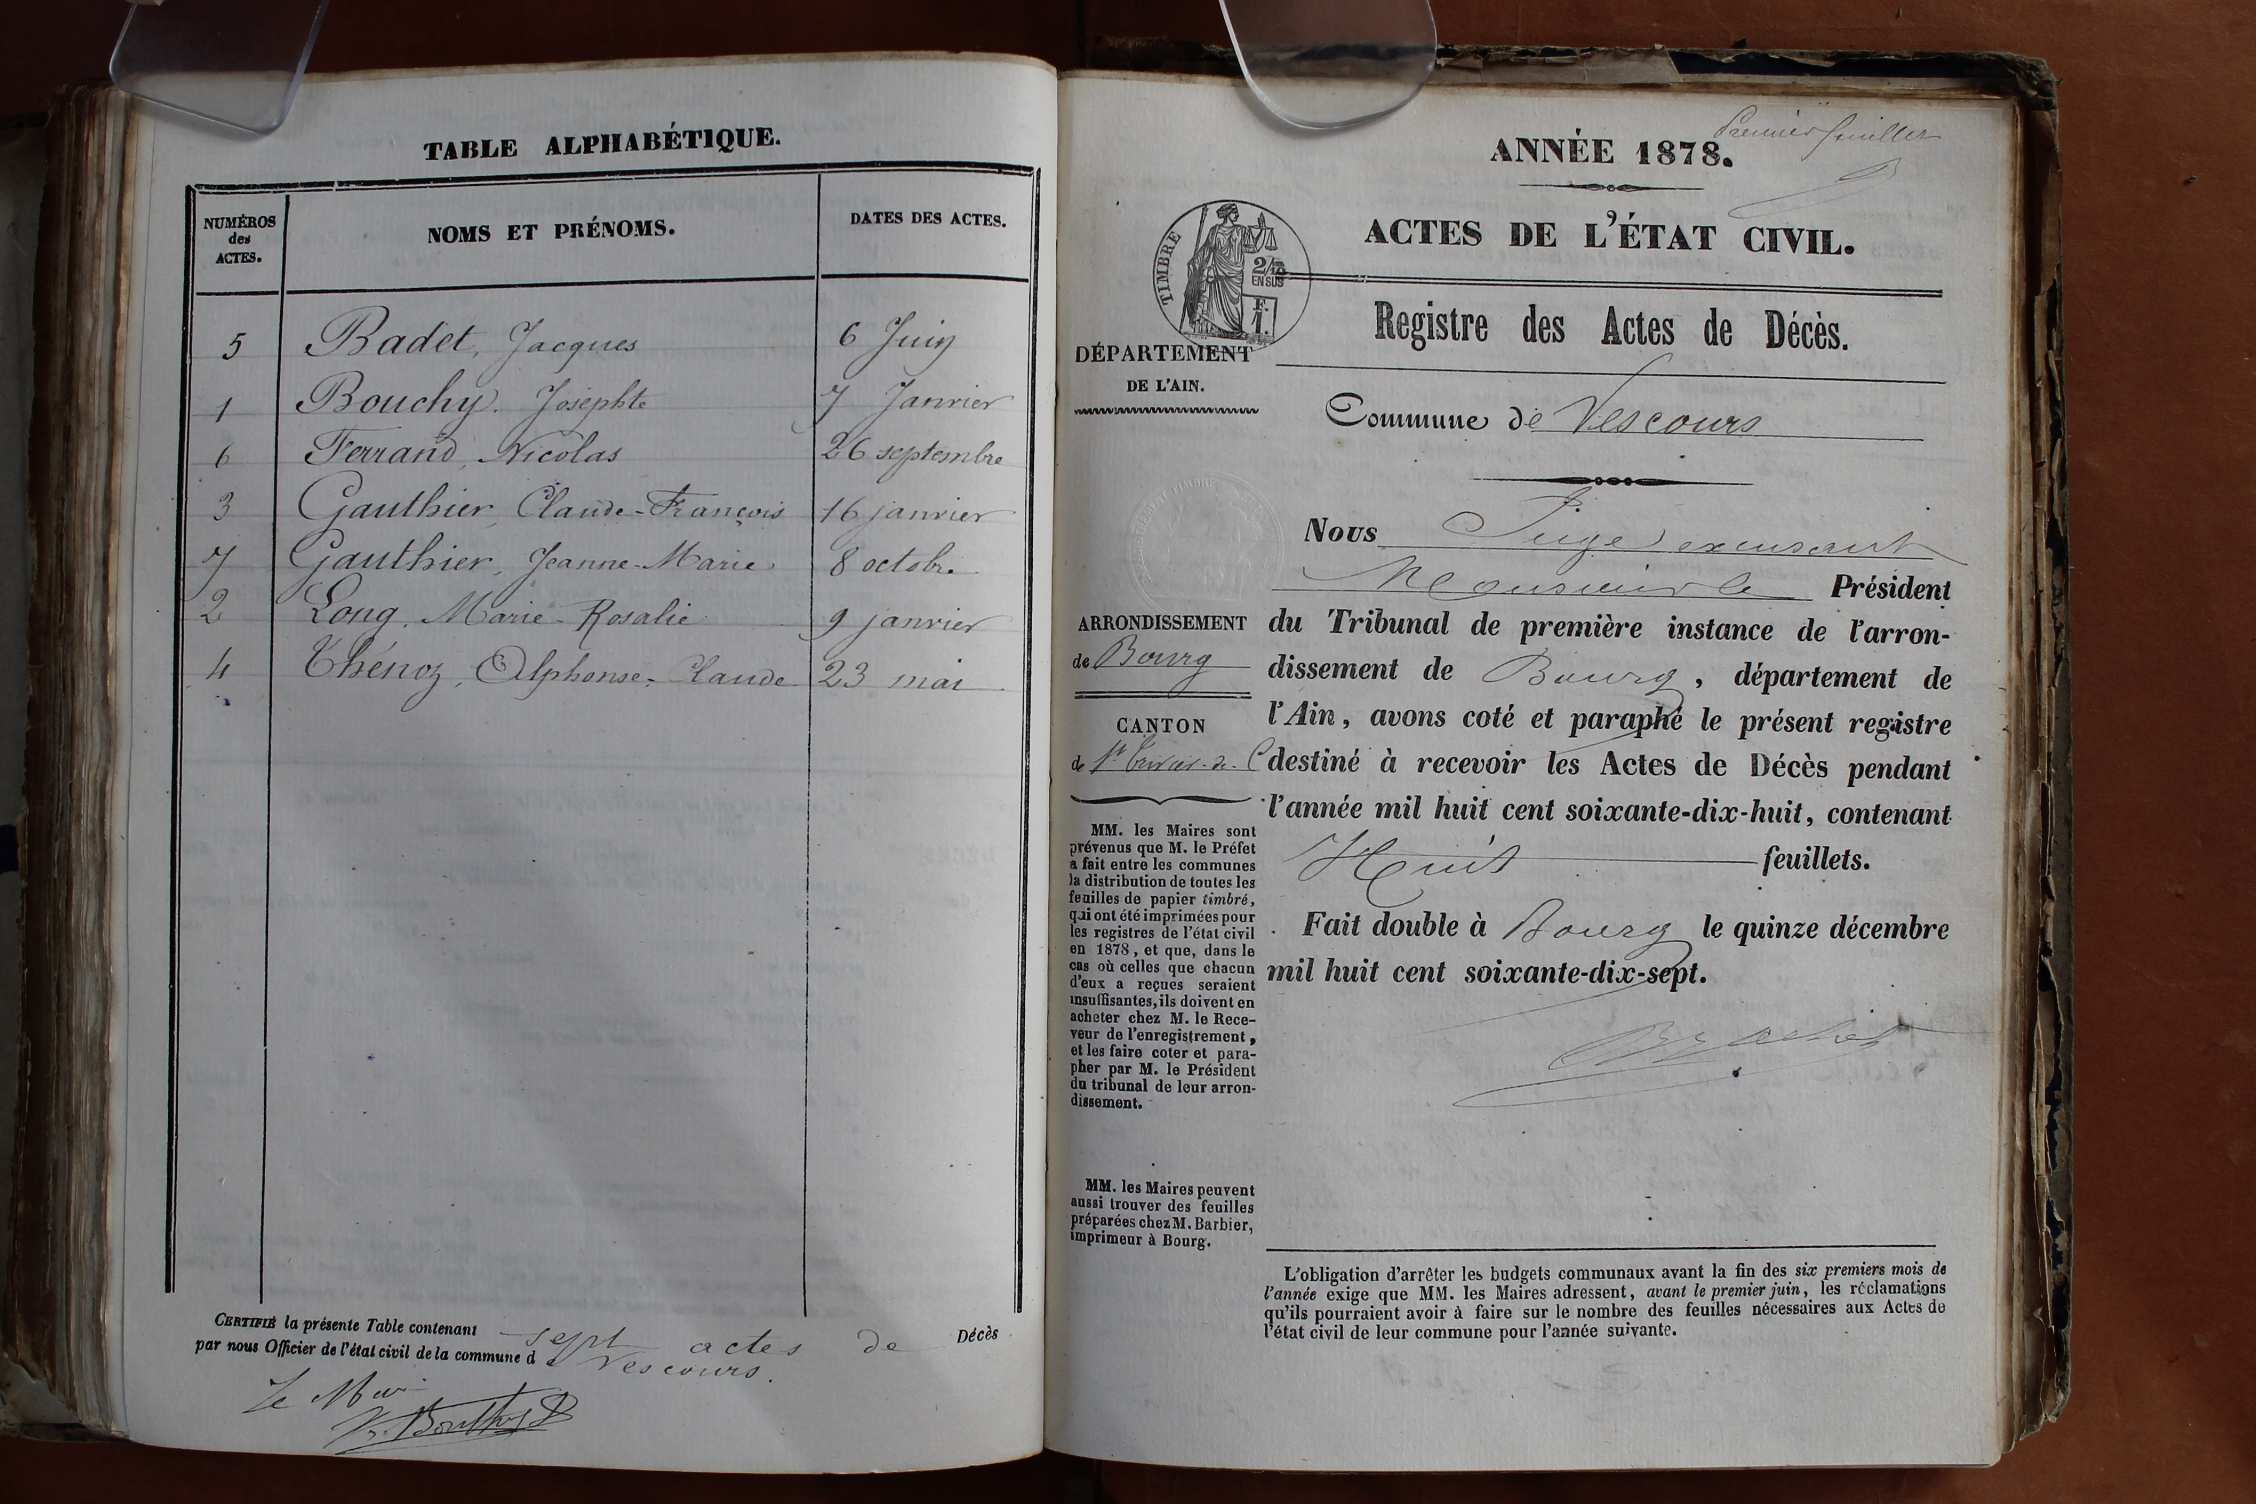 TABLE ALPHABÉTIQUE.
NUMÉROS
des
ACTES.
NOMS ET PRÉNOMS.
DATES DES ACTES.
5 Badet, Jacques 6 Juin
1 Bouchy. Josephte 7 Janvier
6 Ferrand, Nicolas 26 septembre
3 Gauthier, Claude-François 16 janvier
7 Gauthier, Jeanne-Marie 8 octobre
2 Long, Marie-Rosalie 9 janvier
4 Thénoz, Alphonse-Claude 23 mai
CERTIFIÉ la présente Table contenant sept actes de Décès
par nous Officier de l'état civil de la commune d Vescours.
Le Maire
Premier feuillet
ANNÉE 1878.
ACTES DE L'ÉTAT CIVIL.
TIMBRE
2/10
EN SUS
F.
1.
Registre des Actes de Décès.
DÉPARTEMENT
DE L'AIN.
Commune de Vescours
Nous Juge excusant
Monsieur le Président
du Tribunal de première instance de l'arron-
dissement de Bourg, département de
l'Ain, avons coté et paraphé le présent registre
destiné à recevoir les Actes de Décès pendant
l'année mil huit cent soixante-dix-huit, contenant
Huit feuillets.
Fait double à Bourg le quinze décembre
mil huit cent soixante-dix-sept.
ARRONDISSEMENT
de Bourg
CANTON
de St Trivier-de-C
MM. les Maires sont
prévenus que M. le Préfet
a fait entre les communes
la distribution de toutes les
feuilles de papier timbré,
qui ont été imprimées pour
les registres de l'état civil
en 1878, et que, dans le
cas où celles que chacun
d'eux a reçues seraient
insuffisantes, ils doivent en
acheter chez M. le Rece-
veur de l'enregistrement,
et les faire coter et para-
pher par M. le Président
du tribunal de leur arron-
dissement.
MM. les Maires peuvent
aussi trouver des feuilles
préparées chez M. Barbier,
imprimeur à Bourg.
L'obligation d'arrêter les budgets communaux avant la fin des six premiers mois de
l'année exige que MM. les Maires adressent, avant le premier juin, les réclamations
qu'ils pourraient avoir à faire sur le nombre des feuilles nécessaires aux Actes de
l'état civil de leur commune pour l'année suivante.